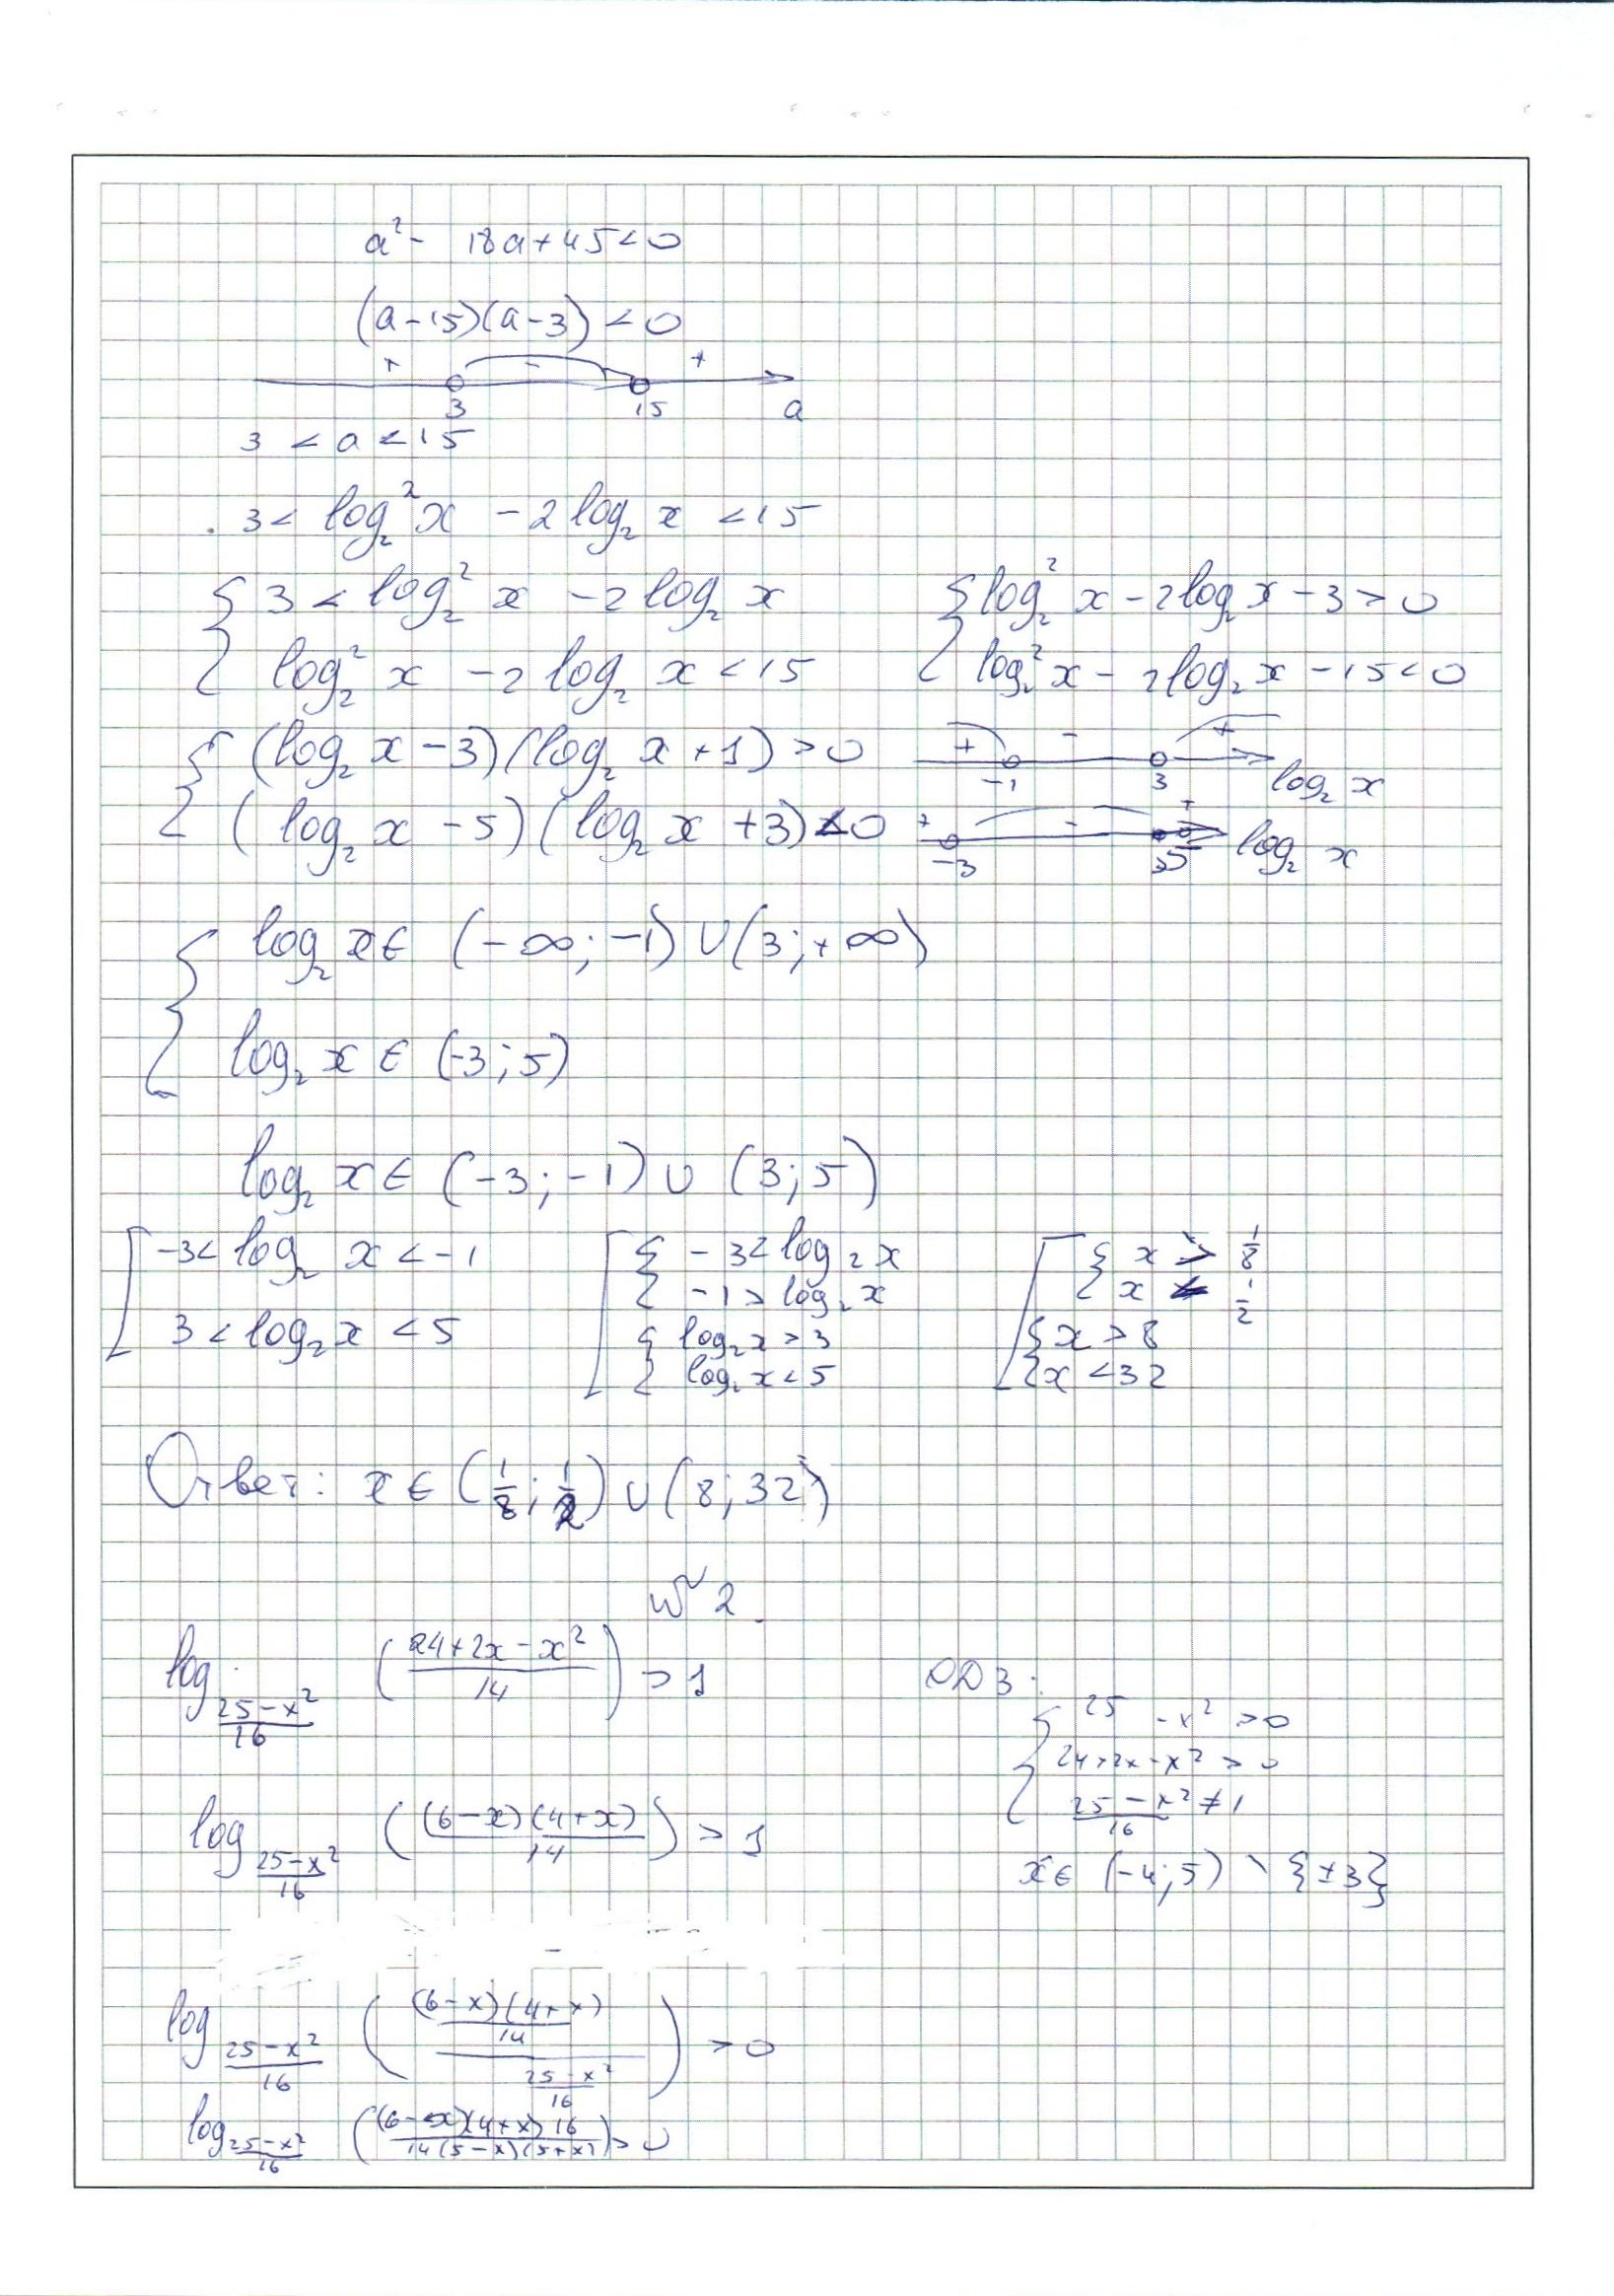 a² - 18a + 45 < 0
(a - 15)(a - 3) < 0
+ - +
3 15 a
3 < a < 15
3 < log₂² x - 2 log₂ x < 15
{ 3 < log₂² x - 2 log₂ x { log₂² x - 2 log₂ x - 3 > 0
{ log₂² x - 2 log₂ x < 15 { log₂² x - 2 log₂ x - 15 < 0
{ (log₂ x - 3)(log₂ x + 1) > 0 + - + -1 3 log₂ x
{ (log₂ x - 5)(log₂ x + 3) < 0 + - + -3 5 log₂ x
{ log₂ x ∈ (-∞; -1) ∪ (3; +∞)
{ log₂ x ∈ (-3; 5)
log₂ x ∈ (-3; -1) ∪ (3; 5)
[ -3 < log₂ x < -1 [ { -3 < log₂ x [ { x > 1/8
{ -1 > log₂ x { x < 1/2
3 < log₂ x < 5 { log₂ x > 3 { x > 8
{ log₂ x < 5 { x < 32
Ответ: x ∈ (1/8; 1/2) ∪ (8; 32)
№ 2.
log_{(25 - x²)/16} ((24 + 2x - x²)/14) > 1 ОДЗ:
{ 25 - x² > 0
{ 24 + 2x - x² > 0
{ (25 - x²)/16 ≠ 1
log_{(25 - x²)/16} ((6 - x)(4 + x)/14) > 1
x ∈ (-4; 5) \ {±3}
log_{(25 - x²)/16} (((6 - x)(4 + x)/14)/((25 - x²)/16)) > 0
log_{(25 - x²)/16} ((6 - x)(4 + x) 16/(14(5 - x)(5 + x))) > 0